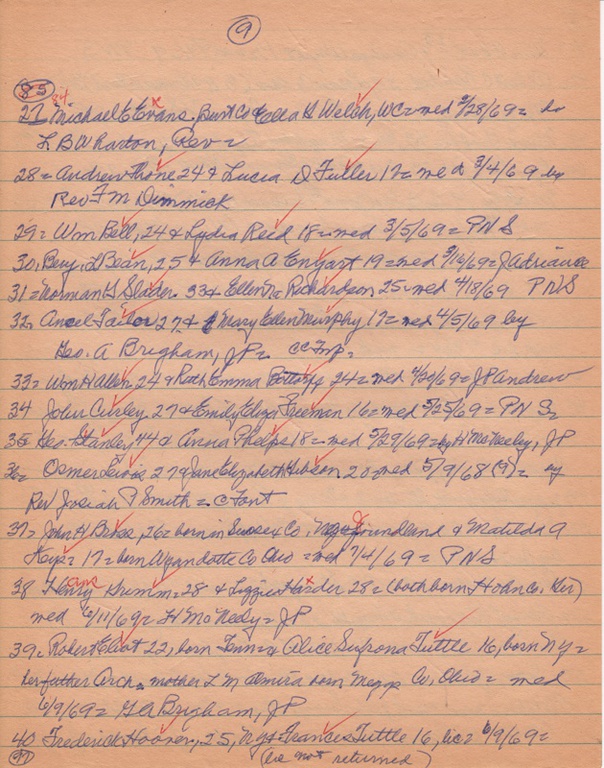 9
85 84
27 Michael E Evans. Burt Co & Ella G Welsh, WC = med 2/28/69 = by
L. B Wharton, Rev =
28 = Andrew Thone 24 & Lucia D Fuller 17 = med 3/4/69 by
Rev F M Dimmick
29 = Wm Bell, 24 & Lydia Reed 18 = med 3/5/69 = P N S
30, Benj. L Bean, 25 & Anna A Enyart 19 = med 3/16/69 = J Adriance
31 = Norman G Slader. 33 & Ellen Richardson 25 = med 4/18/69 P N S
32, Ancel Tailor 27, & Mary Ellen Murphy 17 = med 4/5/69 by
Geo. A Brigham, JP =
33 = Wm H Allen 24 & Ruth Emma 24 = med 4/20/69 = JP Andrew
34 John Curley 27 & Emily Eliza Freeman 16 = med 5/25/69 = P N S
35 Geo. Stanley 44 & Anna Phelps 18 = med 5/29/69 = by H McNeeley, JP
36 = Osmer 27 & Jane Elizabeth Gibson 20 = med 5/9/68 (9) = by
Rev Josiah P Smith = C Font
37 = John H 26 = born in Sussex Co, & Matilda A
Keys = 17 = born Wyandotte Co Ohio = med 7/4/69 = P N S
38 Henry Kremm = 28 & Lizzie Harder 28 = (both born Ger)
med 6/11/69 = H McNeely = JP
39 = Robert Eliot 22, born Tenn = & Alice Sufrona Tuttle 16, born NY =
her father Arch = mother L M Almira born Meggs Co, Ohio = med
6/9/69 = G A Brigham, JP
40 Frederick Hoover, 25, NY & Frances Tuttle 16, lic = 6/9/69 =
(lic not returned)